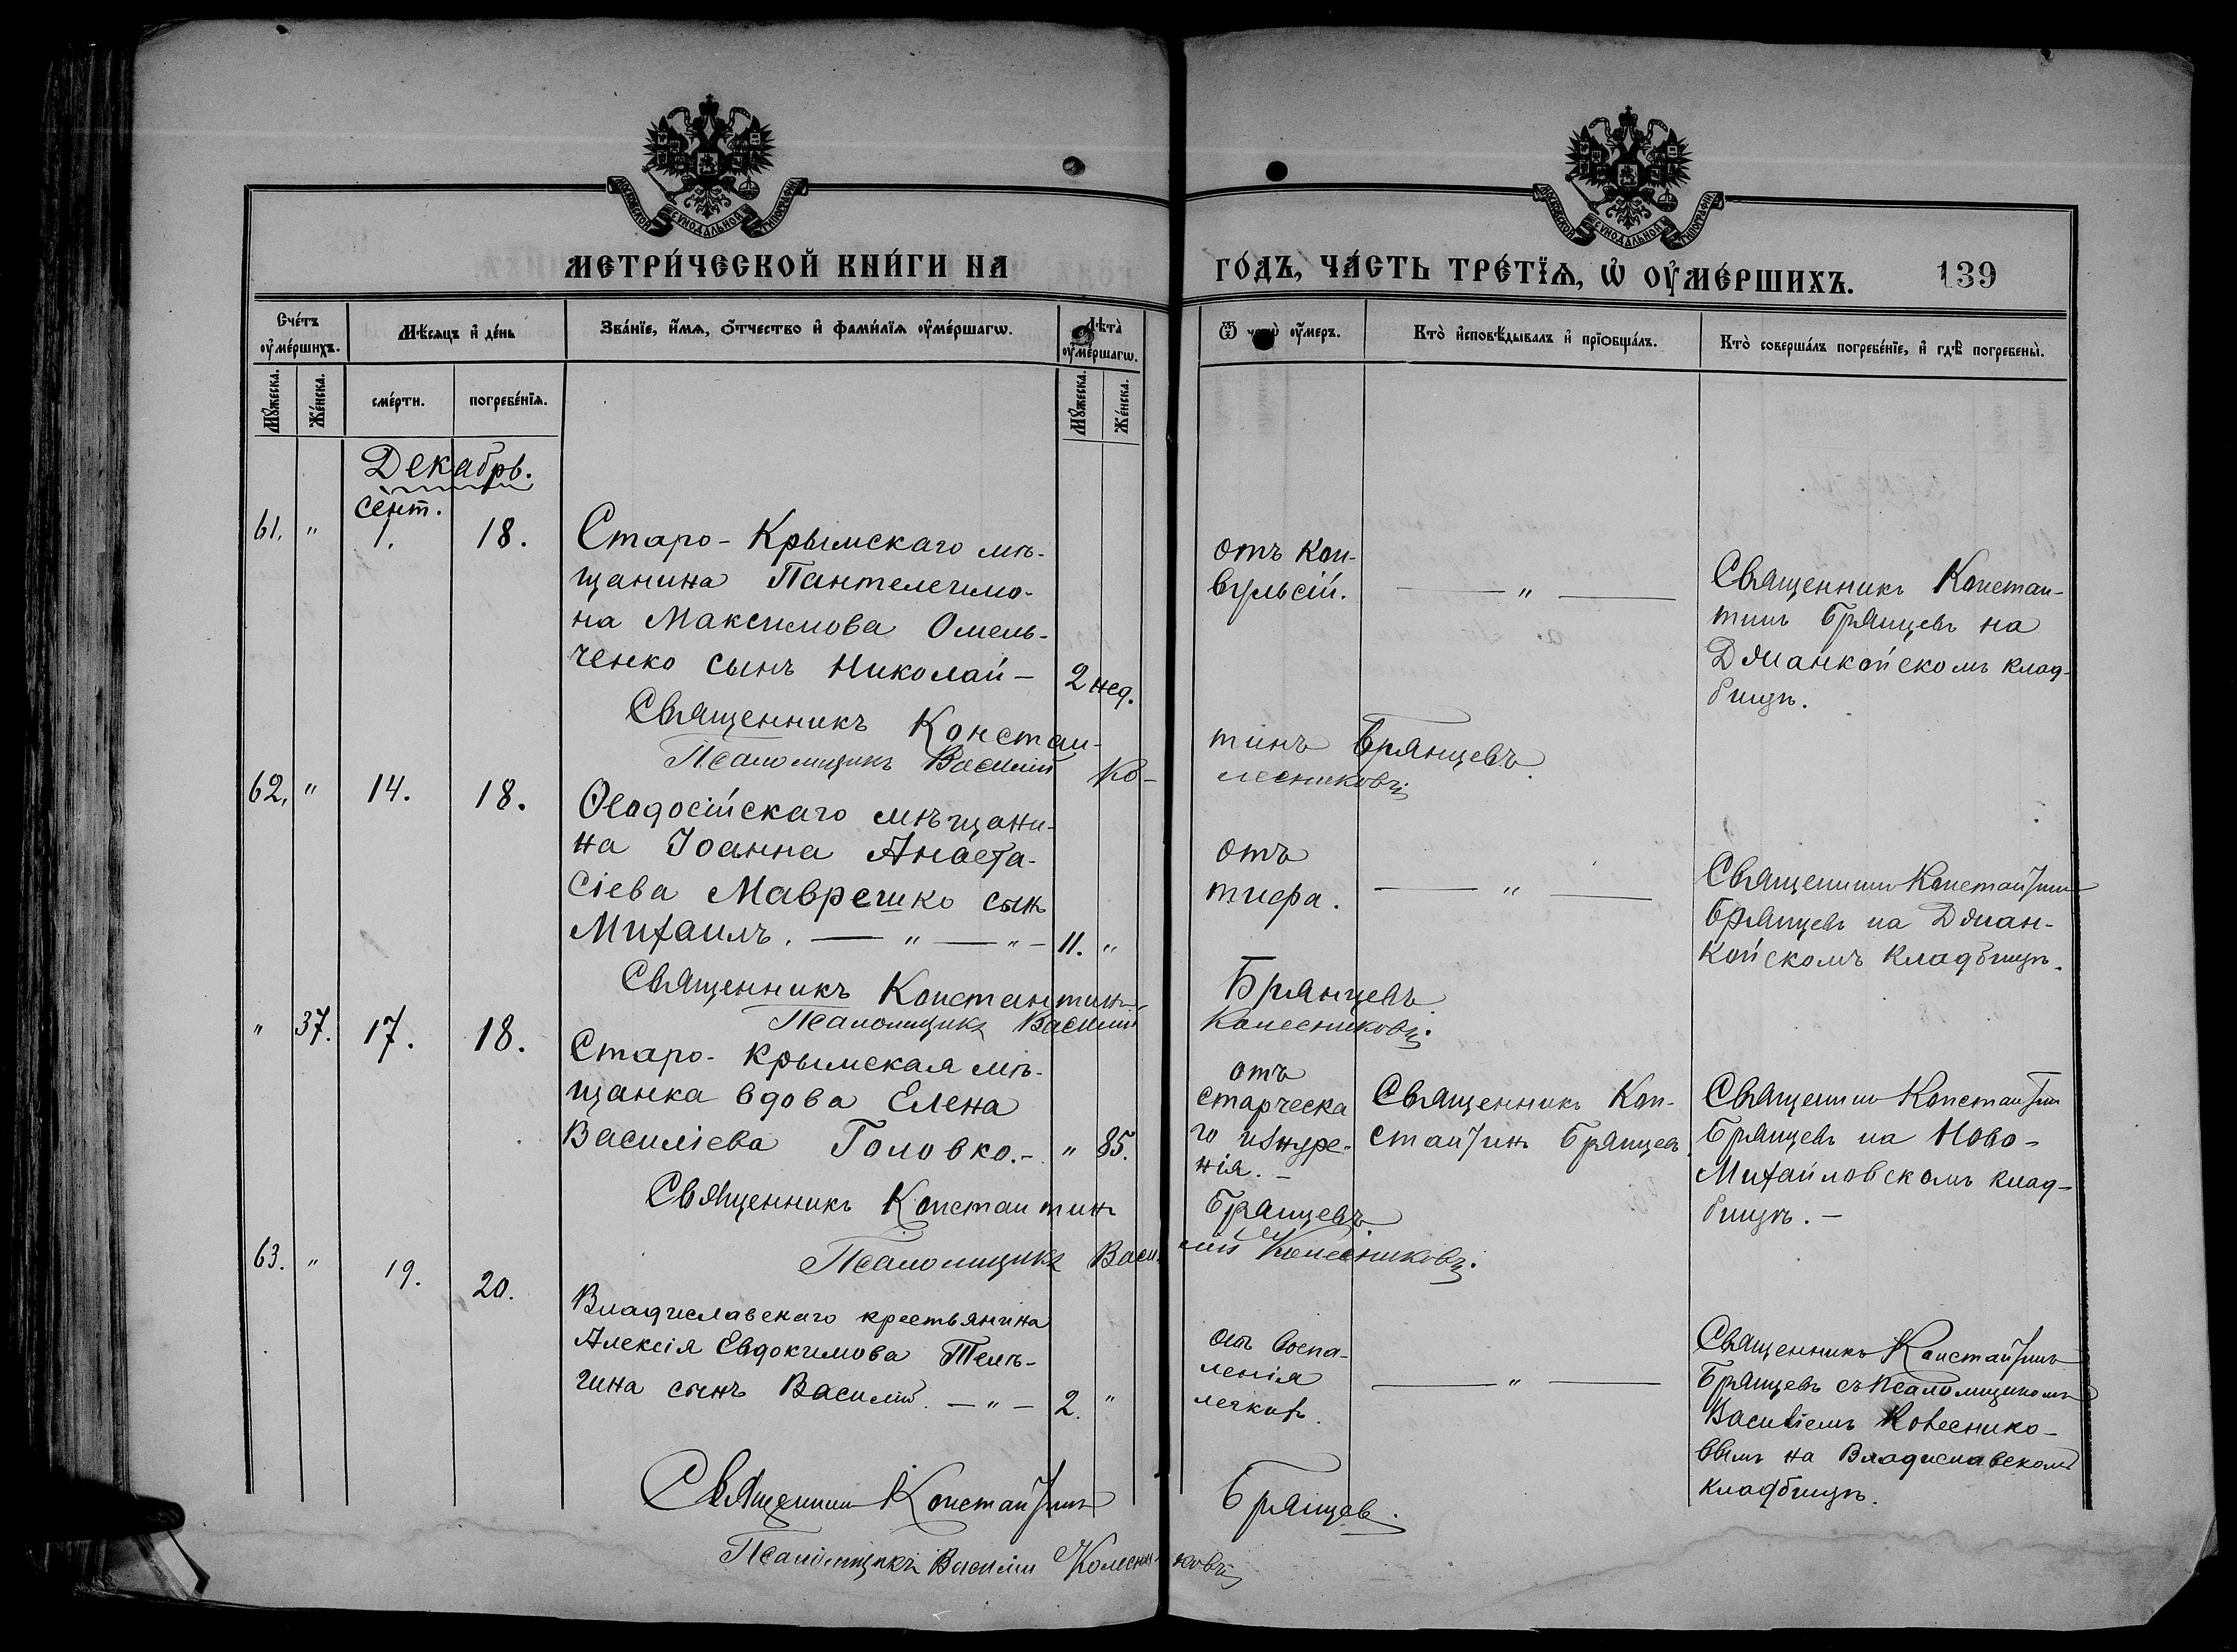 МОСКОВСКОЙ СУНОДАЛЬНОЙ ТИПОГРАФІИ
МОСКОВСКОЙ СУНОДАЛЬНОЙ ТИПОГРАФІИ
МЕТРИ́ЧЕСКОЙ КНИ́ГИ НА
ГО́ДЪ, ЧА́СТЬ ТРЕ́ТЇѦ, Ѡ҆ ОУ҆МЕ́РШИХЪ.
139
Сче́тъ оу҆ме́ршихъ.
Мѣ́сѧцъ и҆ де́нь
Зва́нїе, и҆́мѧ, ѻ҆́тчество и҆ фами́лїѧ оу҆ме́ршагѡ.
Лѣта̀ оу҆ме́ршагѡ.
Ѿ чегѡ̀ оу҆́меръ.
Кто̀ и҆сповѣ́дывалъ и҆ прїѡбща́лъ.
Кто̀ соверша́лъ погребе́нїе, и҆ гдѣ̀ погребены̀.
Мꙋ́жеска.
Же́нска.
сме́рти.
погребе́нїѧ.
Мꙋ́жеска.
Же́нска.
Декабрь.
Сент.
61. " 1. 18.
Старо-Крымскаго мѣ-
щанина Пантелеимо-
на Максимова Омель-
ченко сынъ Николай — 2 нед.
отъ кон-
вульсій.
— " —
Священникъ Констан-
тинъ Брянцевъ на
Джанкойскомъ клад-
бищѣ.
Священникъ Констан-
тинъ Брянцевъ.
Псаломщикъ Василій Ко-
лесниковъ
62. " 14. 18.
Ѳеодосійскаго мѣщани-
на Іоанна Анаста-
сіева Маврешко сынъ
Михаилъ. — " — " — 11. "
отъ
тифа.
— " —
Священникъ Константинъ
Брянцевъ на Джан-
койскомъ кладбищѣ.
Священникъ Константинъ
Брянцевъ
Псаломщикъ Василій
Колесниковъ.
" 37. 17. 18.
Старо-Крымская мѣ-
щанка вдова Елена
Василіева Головко. — " 85.
отъ
старческа
го изнуре-
нія. —
Священникъ Кон-
стантинъ Брянцевъ.
Священникъ Константинъ
Брянцевъ на Ново-
Михайловскомъ клад-
бищѣ. —
Священникъ Константинъ
Брянцевъ
Псаломщикъ Васи
лій Колесниковъ.
63. " 19. 20.
Владиславскаго крестьянина
Алексія Евдокимова Телѣ-
гина сынъ Василій. — " — 2. "
отъ воспа-
ленія
легкихъ.
— " —
Священникъ Константинъ
Брянцевъ съ псаломщикомъ
Василіемъ Колеснико-
вымъ на Владиславскомъ
кладбищѣ.
Священникъ Константинъ
Брянцевъ.
Псаломщикъ Василій Колесниковъ